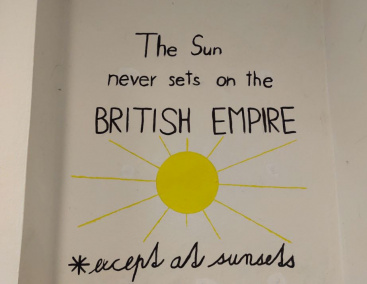 The Sun
never sets on the
BRITISH EMPIRE
*except at sunsets